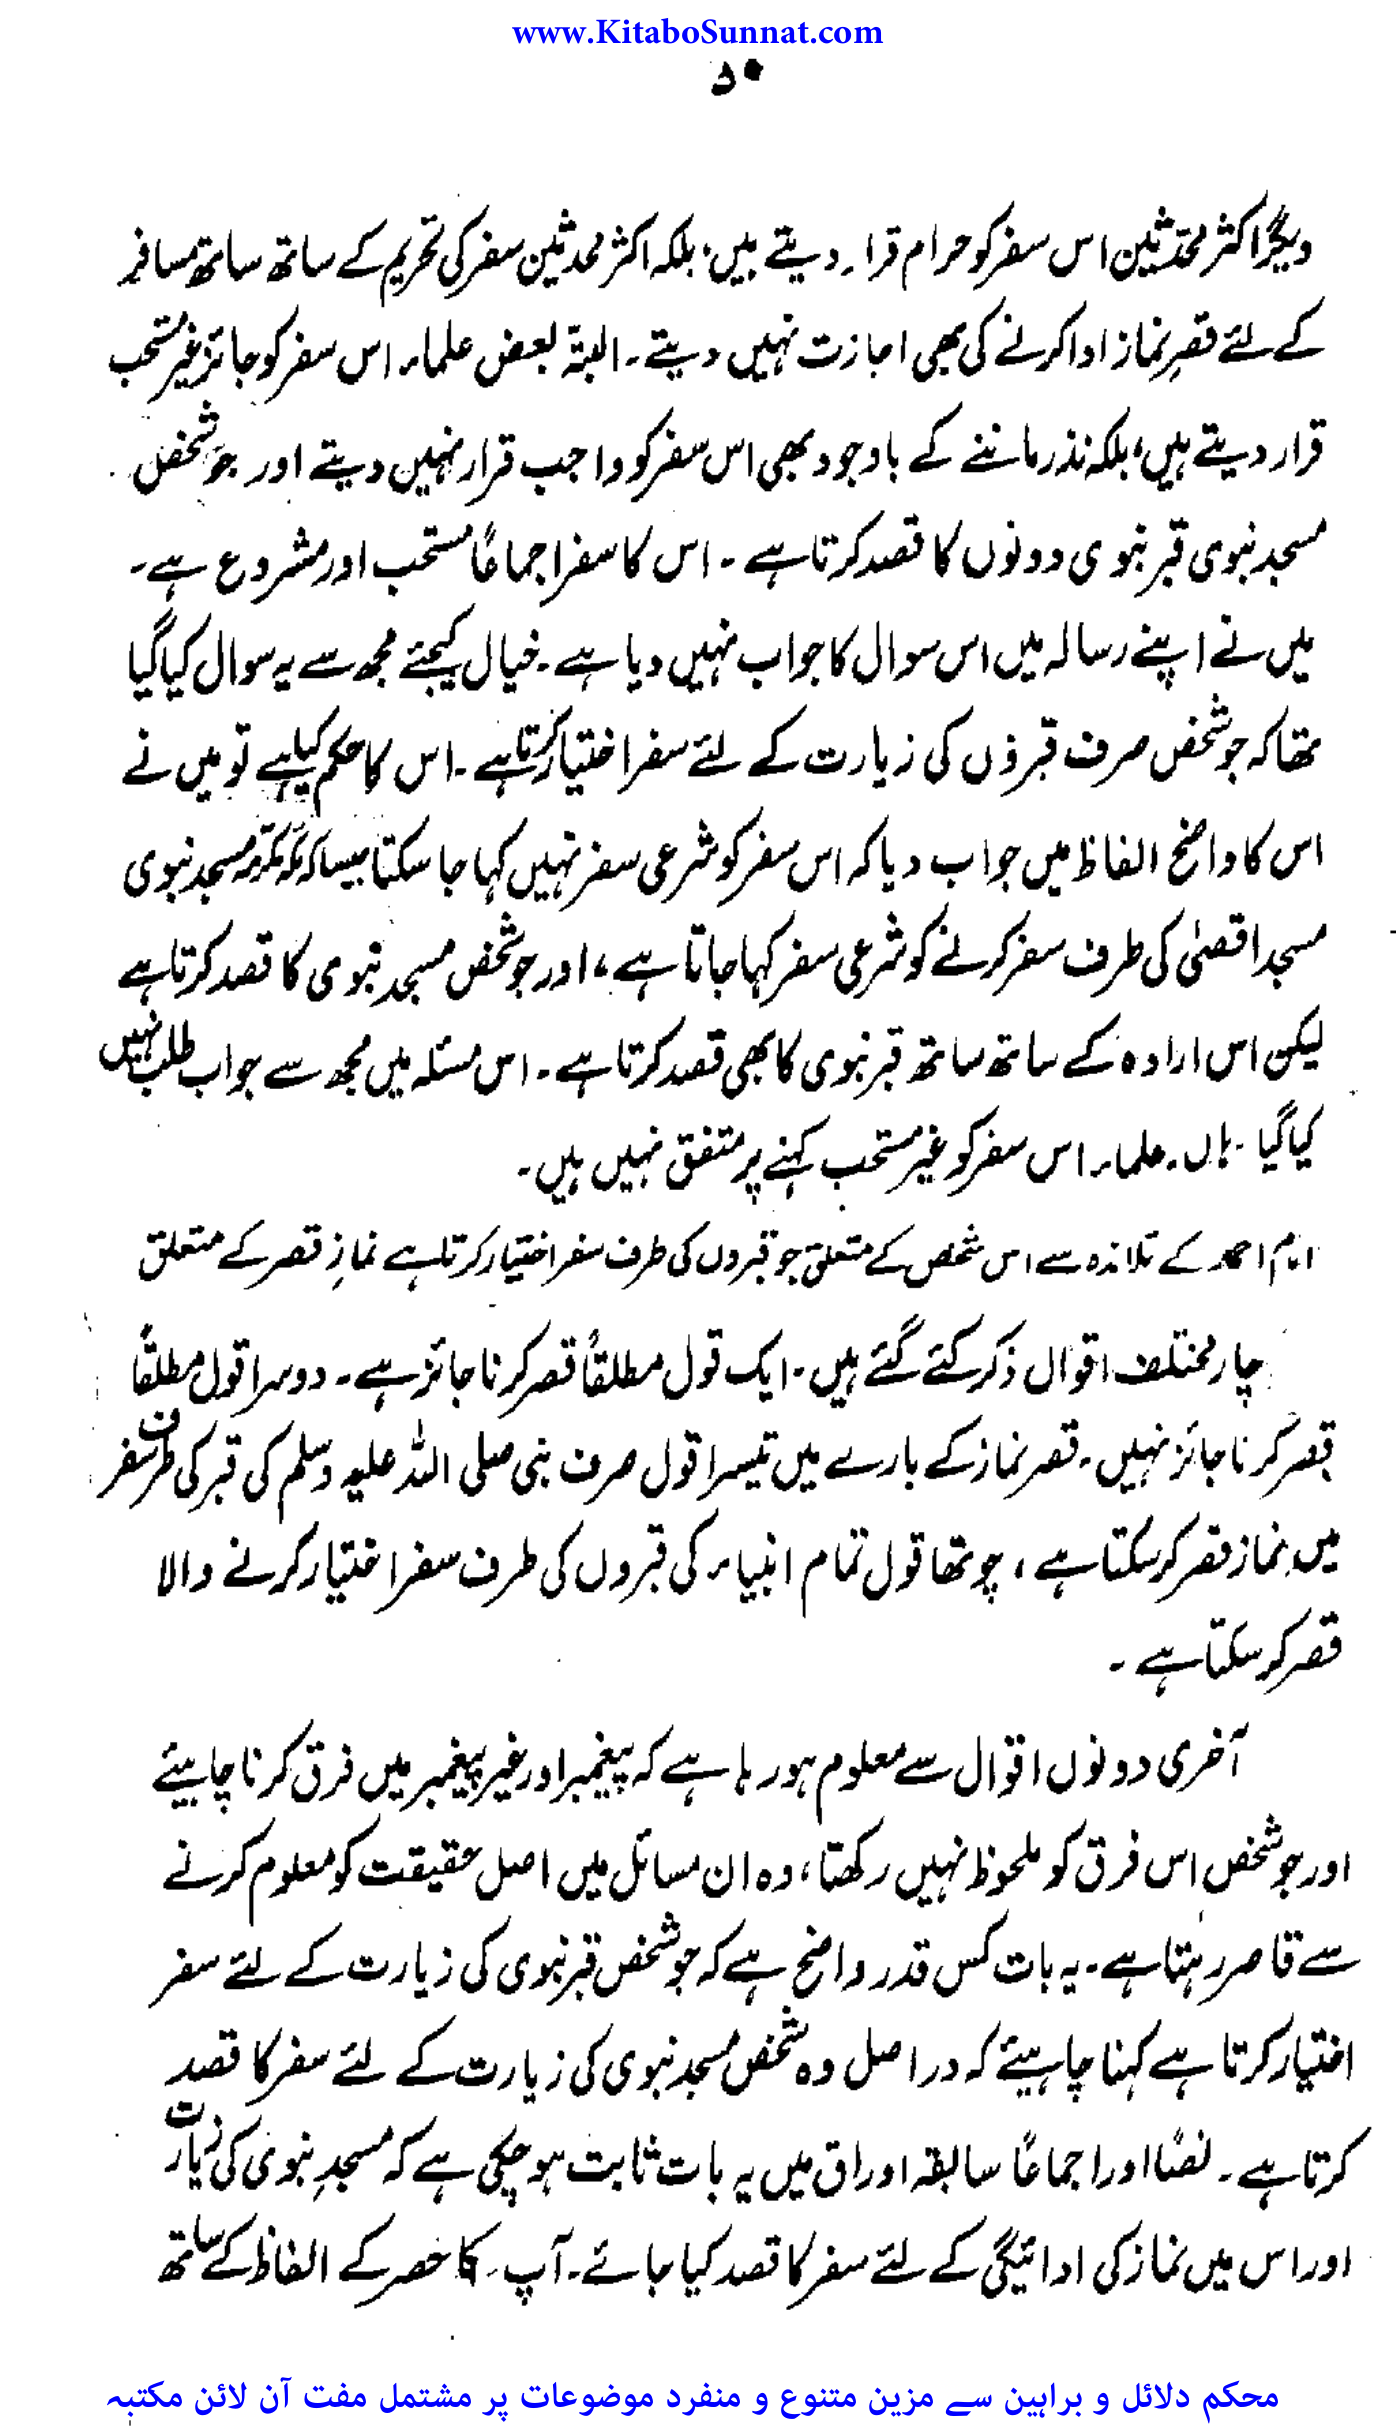 www.KitaboSunnat.com
۵۰
دیگر اکثر محدّثین اس سفر کو حرام قرار دیتے ہیں، بلکہ اکثر محدثین سفر کی تحریم کے ساتھ ساتھ مسافر
کے لئے قصرِ نماز ادا کرنے کی بھی اجازت نہیں دیتے۔ البتہ بعض علماء اس سفر کو جائز غیر مستحب
قرار دیتے ہیں، بلکہ نذر ماننے کے باوجود بھی اس سفر کو واجب قرار نہیں دیتے اور جو شخص
مسجد نبوی قبر نبوی دونوں کا قصد کرتا ہے ۔ اس کا سفر اجماعاً مستحب اور مشروع ہے۔
میں نے اپنے رسالہ میں اس سوال کا جواب نہیں دیا ہے۔ خیال کیجئے مجھ سے یہ سوال کیا گیا
تھا کہ جو شخص صرف قبروں کی زیارت کے لئے سفر اختیار کرتا ہے ۔ اس کا حکم کیا ہے تو میں نے
اس کا واضح الفاظ میں جواب دیا کہ اس سفر کو شرعی سفر نہیں کہا جا سکتا جیسا کہ مکہ مکرّمہ مسجد نبوی
مسجد اقصٰی کی طرف سفر کرنے کو شرعی سفر کہا جاتا ہے، اور جو شخص مسجد نبوی کا قصد کرتا ہے
لیکن اس ارادہ کے ساتھ ساتھ قبر نبوی کا بھی قصد کرتا ہے۔ اس مسئلہ میں مجھ سے جواب طلب نہیں
کیا گیا ۔ ہاں۔ علماء اس سفر کو غیر مستحب کہنے پر متفق نہیں ہیں۔
امام احمد کے تلامذہ سے اس شخص کے متعلق جو قبروں کی طرف سفر اختیار کرتا ہے نمازِ قصر کے متعلق
چار مختلف اقوال ذکر کئے گئے ہیں۔ ایک قول مطلقاً قصر کرنا جائز ہے۔ دوسرا قول مطلقاً
قصر کرنا جائز نہیں۔ قصر نماز کے بارے میں تیسرا قول صرف نبی صلی اللہ علیہ وسلم کی قبر کی طرف سفر
میں نماز قصر کر سکتا ہے ، چوتھا قول تمام انبیاء کی قبروں کی طرف سفر اختیار کرنے والا
قصر کر سکتا ہے ۔
آخری دونوں اقوال سے معلوم ہو رہا ہے کہ پیغمبر اور غیر پیغمبر میں فرق کرنا چاہیئے
اور جو شخص اس فرق کو ملحوظ نہیں رکھتا، وہ ان مسائل میں اصل حقیقت کو معلوم کرنے
سے قاصر رہتا ہے۔ یہ بات کس قدر واضح ہے کہ جو شخص قبر نبوی کی زیارت کے لئے سفر
اختیار کرتا ہے کہنا چاہیئے کہ در اصل وہ شخص مسجد نبوی کی زیارت کے لئے سفر کا قصد
کرتا ہے ۔ نصاً اور اجماعاً سابقہ اوراق میں یہ بات ثابت ہو چکی ہے کہ مسجدِ نبوی کی زیارت
اور اس میں نماز کی ادائیگی کے لئے سفر کا قصد کیا جائے۔ آپ کا حصر کے الفاظ کے ساتھ
محکم دلائل و براہین سے مزین متنوع و منفرد موضوعات پر مشتمل مفت آن لائن مکتبہ